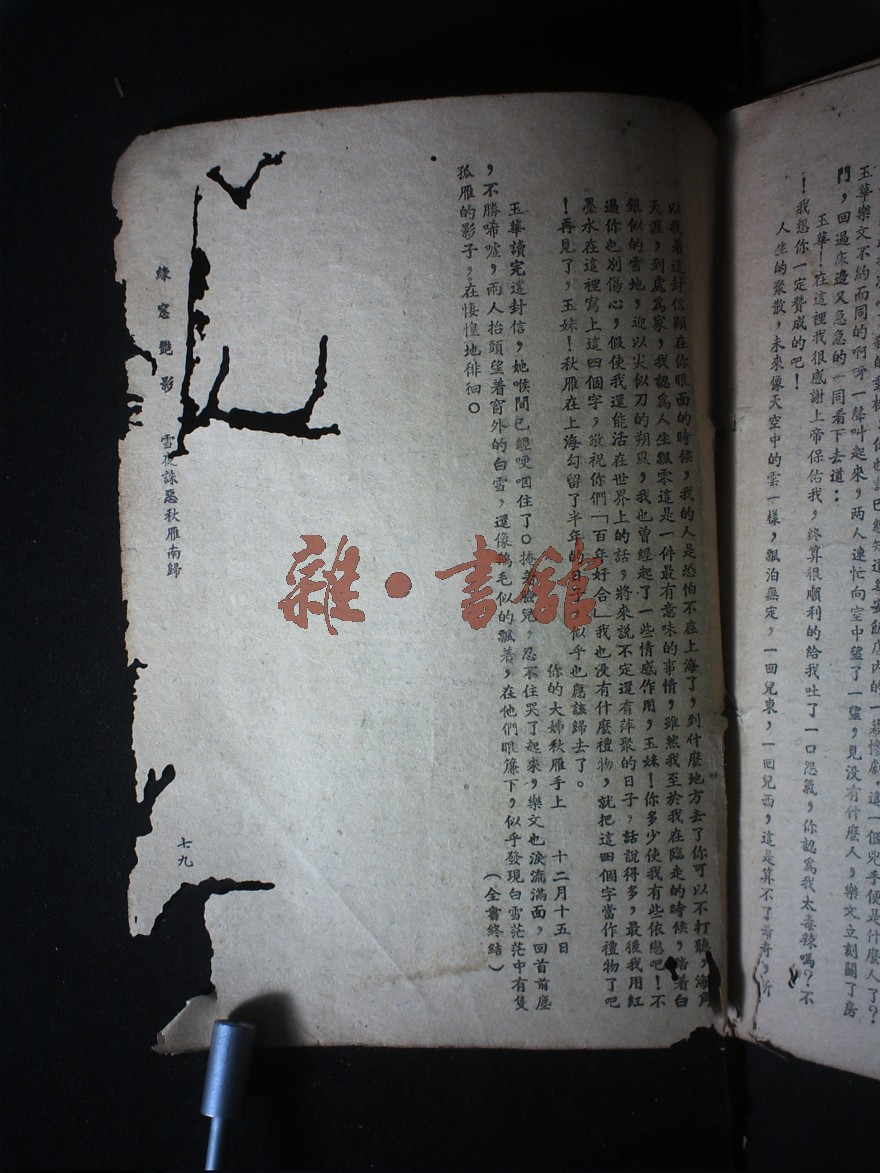 玉華樂文不約而同的啊呀一聲叫起來，兩人連忙向空中望了一望，見没有什麼人，樂文立刻關了房
門，回過床邊又急急的一同看下去道：
玉華！在這裡我很感謝上帝保佑我，終算很順利的給我吐了一口怨氣，你認爲我太毒辣嗎？不
！我想你一定贊成的吧！
人生的聚散，未來像天空中的雲一樣，飄泊無定，一回兒東，一回兒西，這是算不了希奇，所
以我着這封信顧在你眼面的時候，我的人是恐怕不在上海了，到什麼地方去了你可以不打聽，海角
天涯，到處爲家，我認爲人生飄零這是一件最有意味的事情，雖然我至於我在臨走的時候，踏着白
銀似的雪地，迎以尖似刀的朔風，我也曾經起了一些情感作用，玉妹！你多少使我有些依戀吧！不
過你也別傷心，假使我還能活在世界上的話，將來說不定還有萍聚的日子，話說得多，最後我用紅
墨水在這裡寫上這四個字，敬祝你們「百年好合」我也没有什麼禮物，就把這四個字當作禮物了吧
！再見了，玉妹！秋雁在上海勾留了半年的日子，似乎也應該歸去了。
你的大姊秋雁手上　十二月十五日
玉華讀完這封信，她喉間已經哽咽住了。掩着臉兒，忍不住哭了起來，樂文也淚流滿面，回首前塵
，不勝唏噓，兩人抬頭望着窗外的白雪，還像鵝毛似的飄着，在他們眼簾下，似乎發現白雪茫茫中有隻
孤雁的影子，在悽惶地徘徊。
（全書終結）
綠窗艷影　雪夜誅惡秋雁南歸
七九
雜·書館